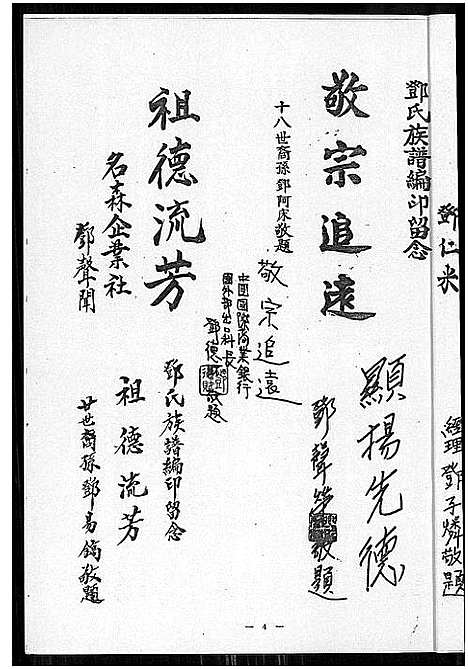 鄧仁米
經理鄧子燐敬題
鄧氏族譜編印留念
敬宗追遠
顯揚先德
十八世裔孫鄧阿床敬題
鄧聲
敬題
敬宗追遠
中國國際商業銀行
國外部出口科長
鄧德
敬題
祖德流芳
名森企業社
鄧聲開
鄧氏族譜編印留念
祖德流芳
廿世裔孫鄧易鎬敬題
— 4 —